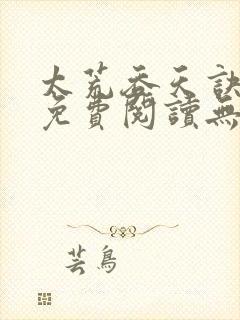 太荒吞天訣
免費閱讀無
芸鳥